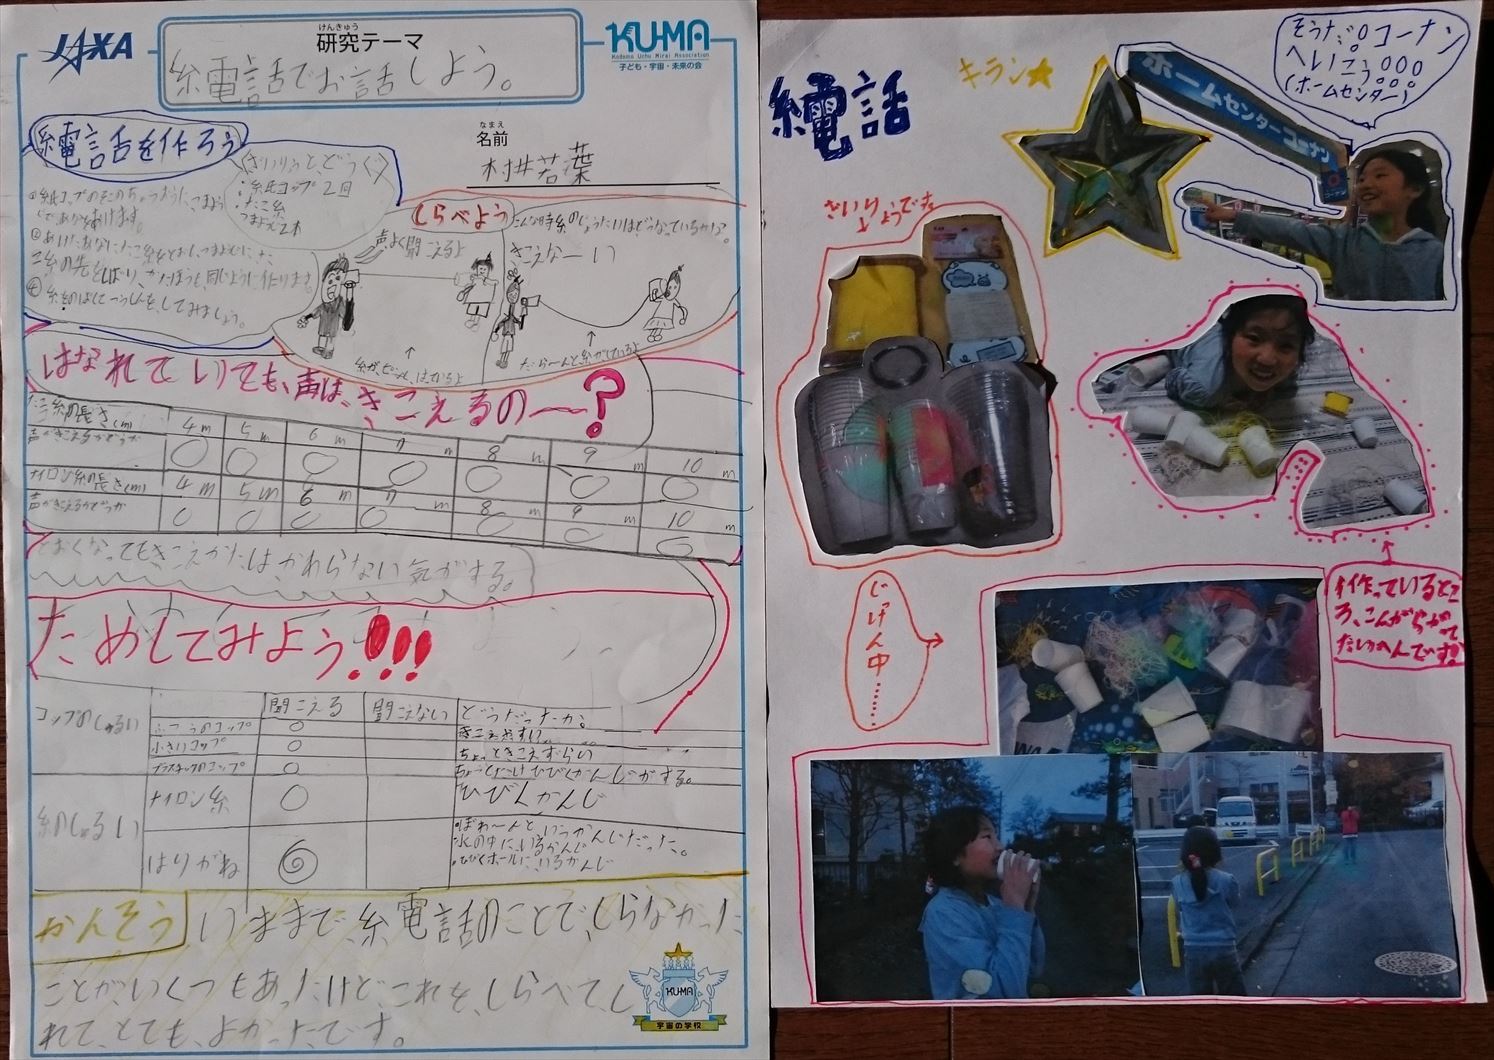 JAXA
けんきゅう
研究テーマ
糸電話でお話しよう。
KU-MA
Kodomo Uchu Mirai Association
子ども・宇宙・未来の会
なまえ
名前
村井若葉
糸電話を作ろう
ざいりょうと、どうぐ
・紙コップ 2コ
・たこ糸
つまようじ2本
しらべよう
こんな時糸のじょうたいはどうなっているかな?
声よく聞こえるよ
きこえなーい
糸がピンと、はっているよ
だら〜んと糸がしているよ
はなれていても、声は、きこえるの〜?
たこ糸の長さ(m) 4m 5m 6m 7m 8m 9m 10m
声がきこえるかどうか ○ ○ ○ ○ ○ ○ ○
ナイロン糸の長さ(m) 4m 5m 6m 7m 8m 9m 10m
声がきこえるかどうか ○ ○ ○ ○ ○ ○ ○
とおくなってもきこえかたは、かわらない気がする。
ためしてみよう!!!
聞こえる 聞こえない どうだったか。
コップのしゅるい
ふつうのコップ ○ きこえやすい
小さいコップ ○ ちょっときこえずらい
プラスチックのコップ ○ ちょっとだけひびくかんじがする。
糸のしゅるい
ナイロン糸 ○ ひびくかんじ
はりがね ◎
・ぼわ〜んというかんじだった。
水の中にいるかんじ
・ひびくホールにいるかんじ
かんそう いままで、糸電話のことで、しらなかった
ことが、いくつもあったけどこれを、しらべてし
れて、とても、よかったです。
KUMA
宇宙の学校
糸電話
キラン★
そうだ。コーナン
へいこう。。。
(ホームセンター)
ホームセンターコーナン
ざいりょうです
じっけん中……
作っているとこ
ろ、こんがらがって
たいへんです!